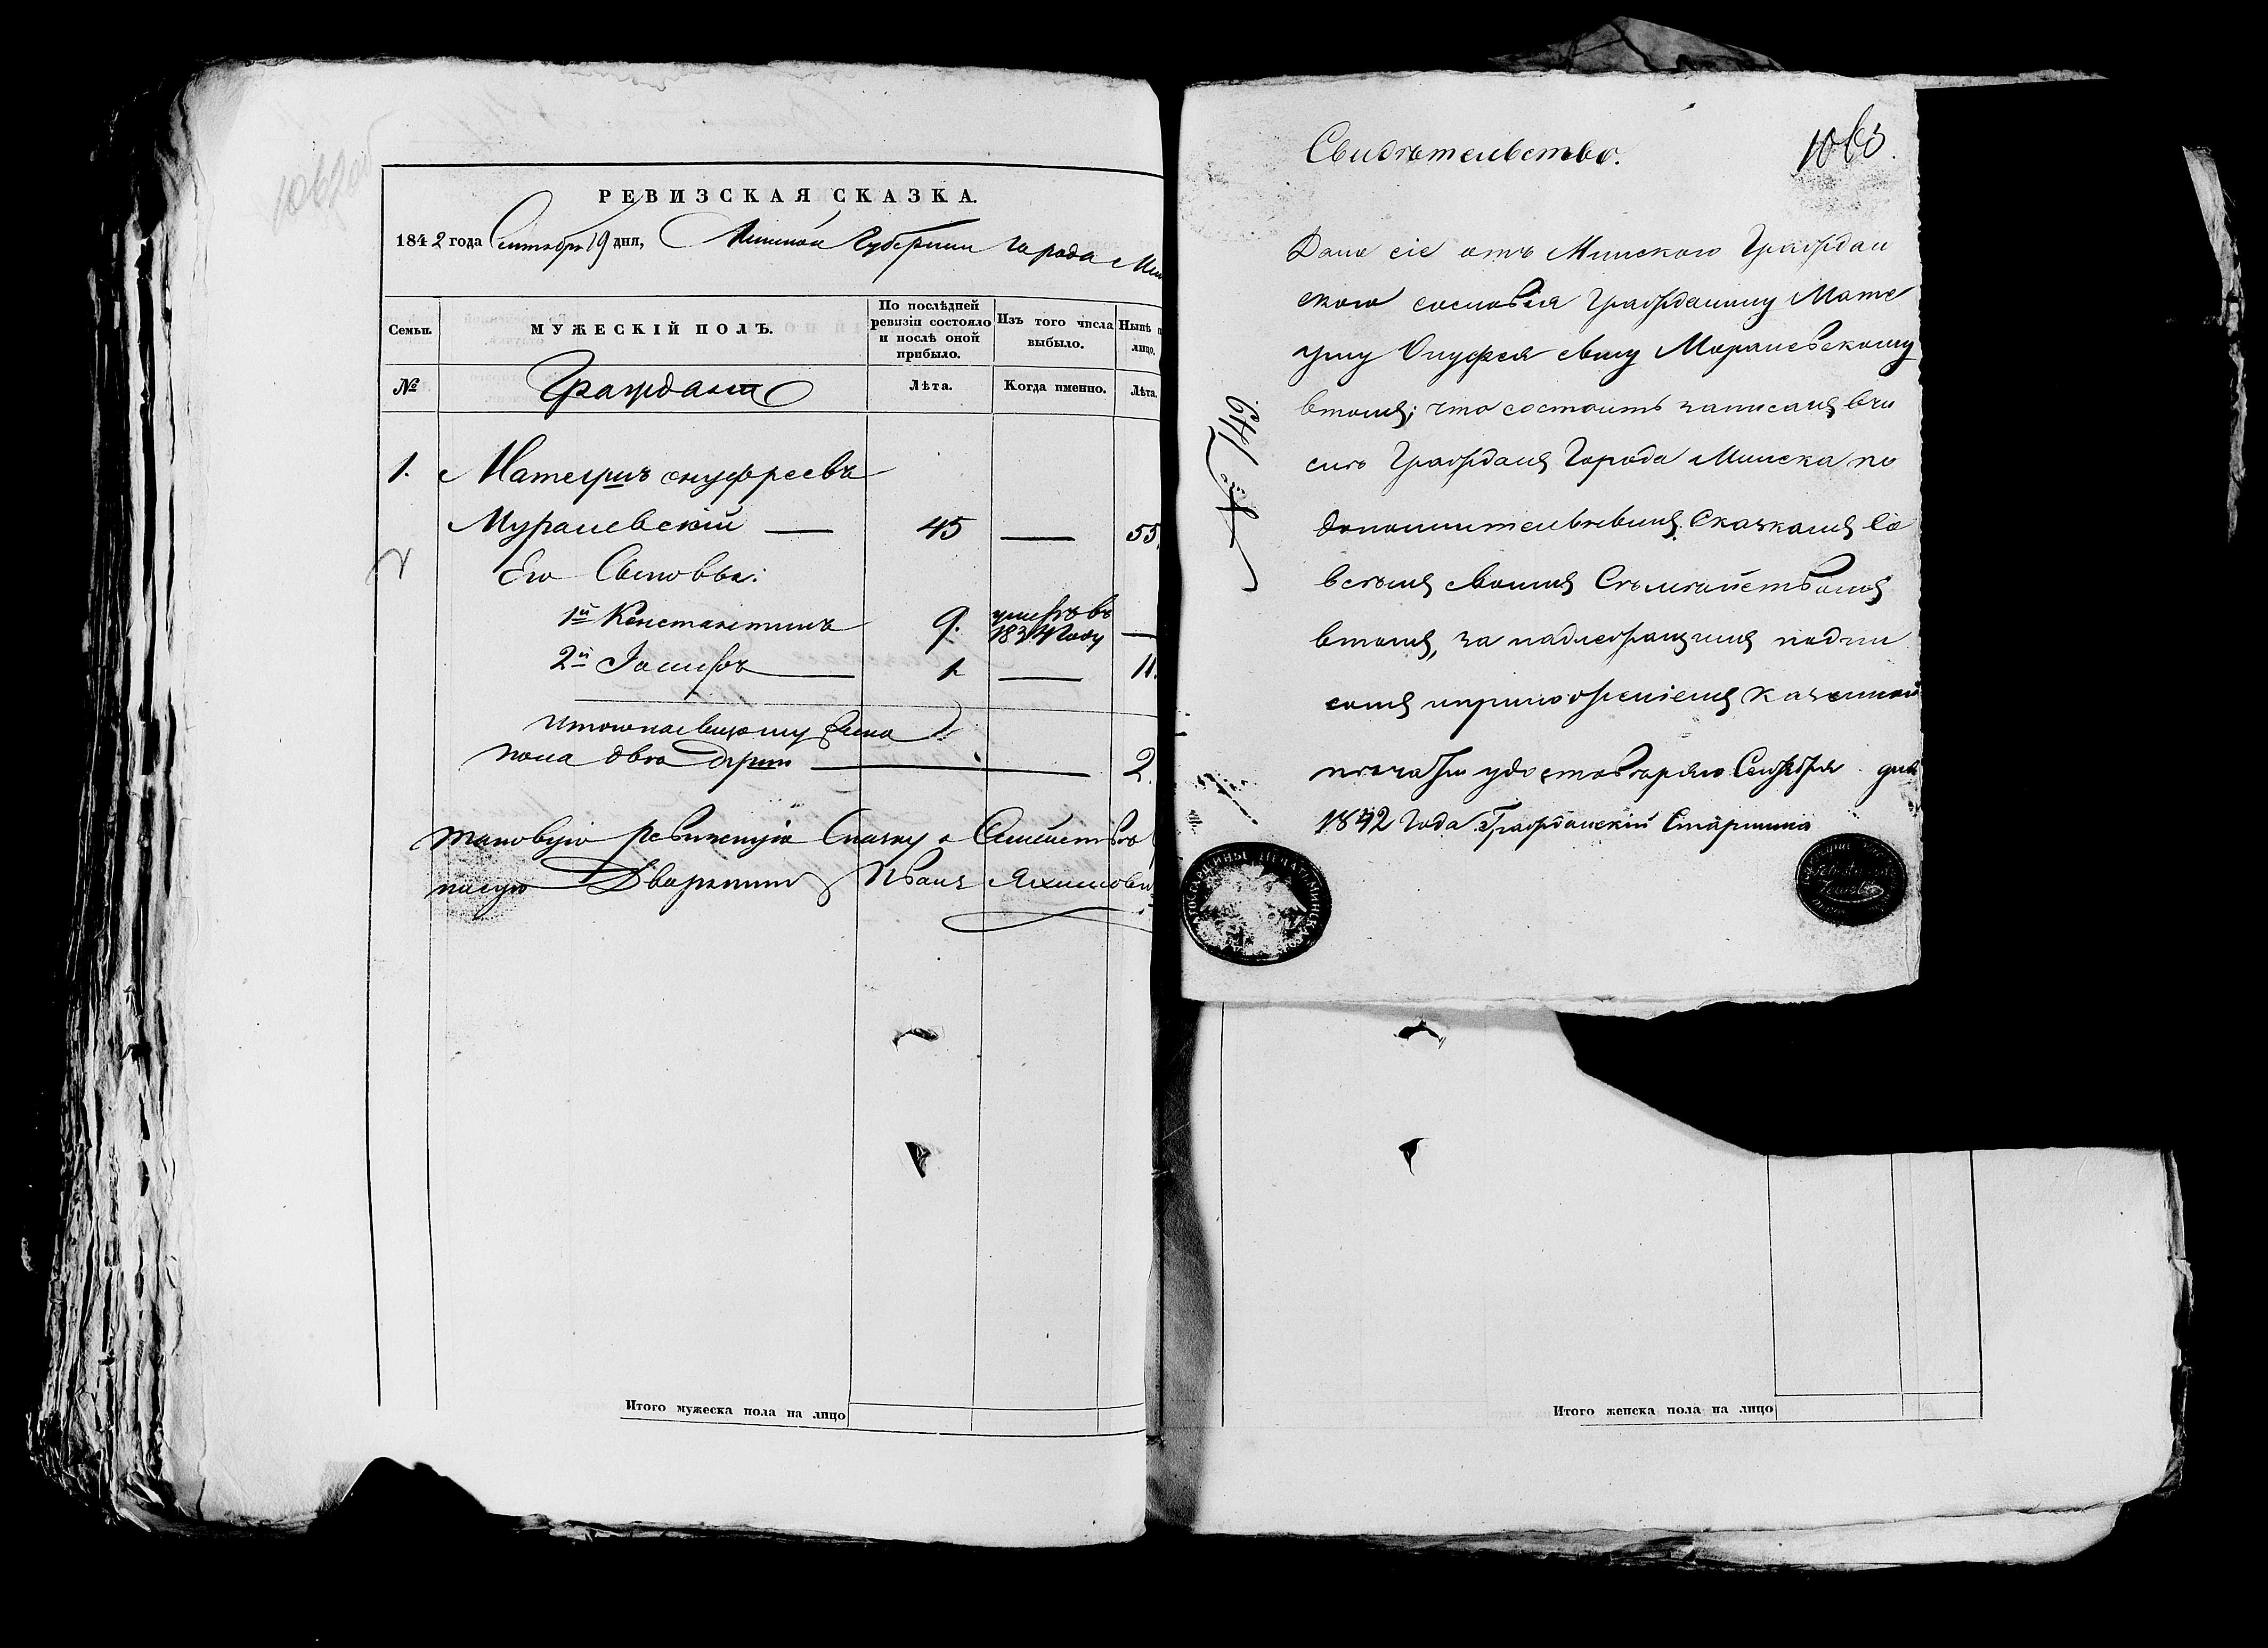 1062об
РЕВИЗСКАЯ СКАЗКА.
1842 года Сентября 19 дня, Минской Губернии города Мин
Семьи. МУЖЕСКІЙ ПОЛЪ. По послѣдней ревизіи состояло и послѣ оной прибыло. Изъ того числа выбыло. Нынѣ лицо.
№ Граждане Лѣта. Когда именно. Лѣта.
1. Матеушъ онуфреевъ
Мурашевскій — 45 — 55.
Его Сыновья:
1й Константинъ 9. умеръ въ 1834 Году —
2й Іосифъ 1 — 11.
Итого налицо му
пола двѣ души — 2.
таковую ревизскую Сказку о Семействѣ
писалъ Дворянинъ Иванъ
Итого мужеска пола на лицо
Свидѣтельство. 1063.
Дано сіе отъ Минского Граждан
ского сословія Гражданину Мате
ушу Онуфрея сыну Морашевскому
втомъ; что состоитъ записанъ вчи
слѣ Гражданъ Города Минска по
дополнительнымъ Сказкамъ Со
всѣмъ своимъ Сѣмѣйствомъ
втомъ, за надлежащимъ подпи
сомъ и приложеніемъ казенной
печати удостовѣряю Сентября дня
1842 Года Гражданскій Старшина
№ 149
Итого женска пола на лицо